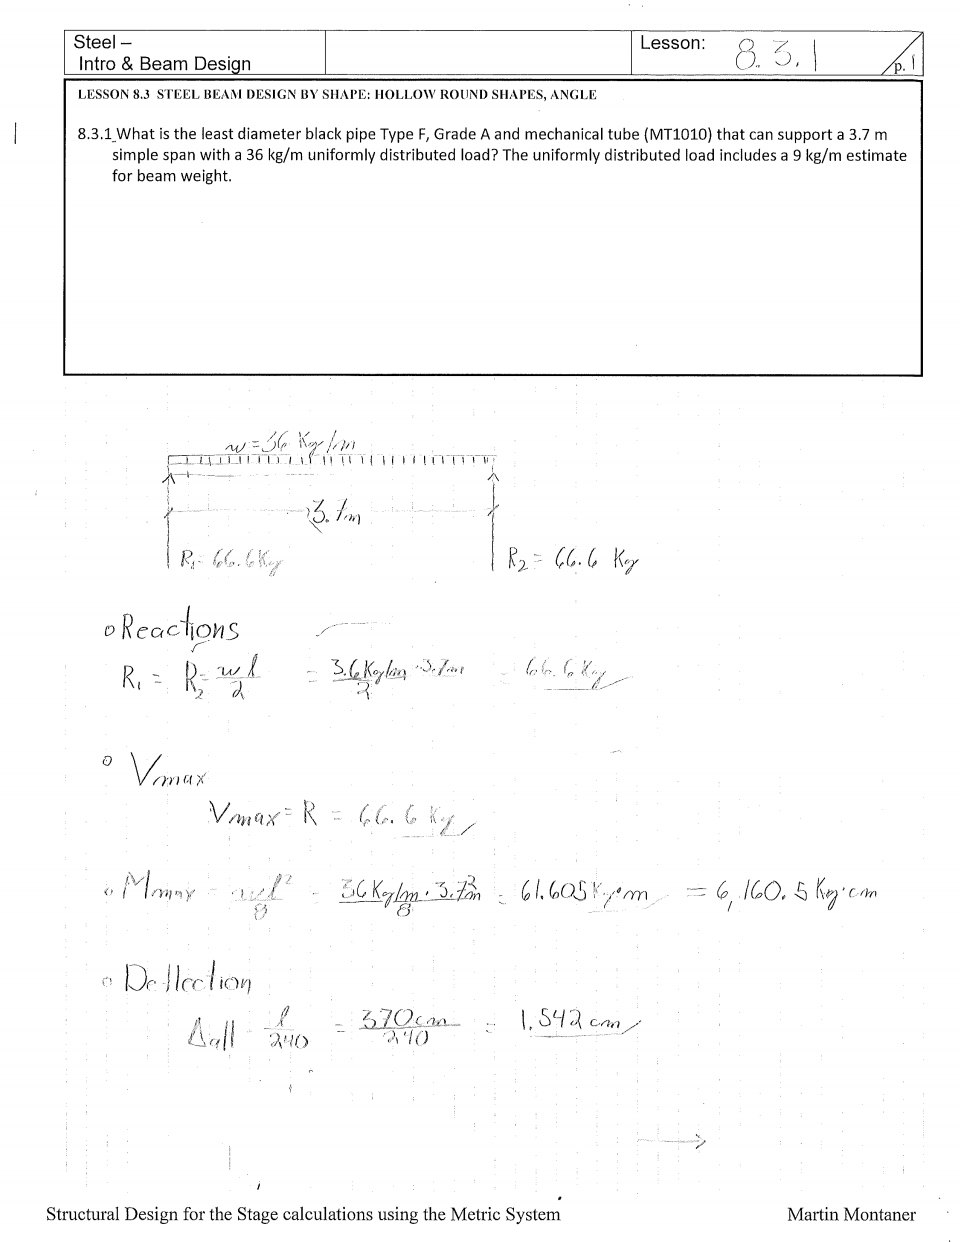 Steel –
Intro & Beam Design
Lesson: 8.3.1
p. 1
LESSON 8.3 STEEL BEAM DESIGN BY SHAPE: HOLLOW ROUND SHAPES, ANGLE
8.3.1 What is the least diameter black pipe Type F, Grade A and mechanical tube (MT1010) that can support a 3.7 m
simple span with a 36 kg/m uniformly distributed load? The uniformly distributed load includes a 9 kg/m estimate
for beam weight.
w = 36 Kg/m
3.7m
R₁ = 66.6 Kg
R₂ = 66.6 Kg
Reactions
R₁ = R₂ = wl/2 = 3.6 Kg/m · 3.7m/2 = 66.6 Kg
Vmax
Vmax = R = 66.6 Kg
Mmax = wl²/8 = 36 Kg/m · 3.7²m/8 = 61.605 Kg·m = 6,160.5 Kg·cm
Deflection
Δall = l/240 = 370cm/240 = 1.542 cm
Structural Design for the Stage calculations using the Metric System
Martin Montaner